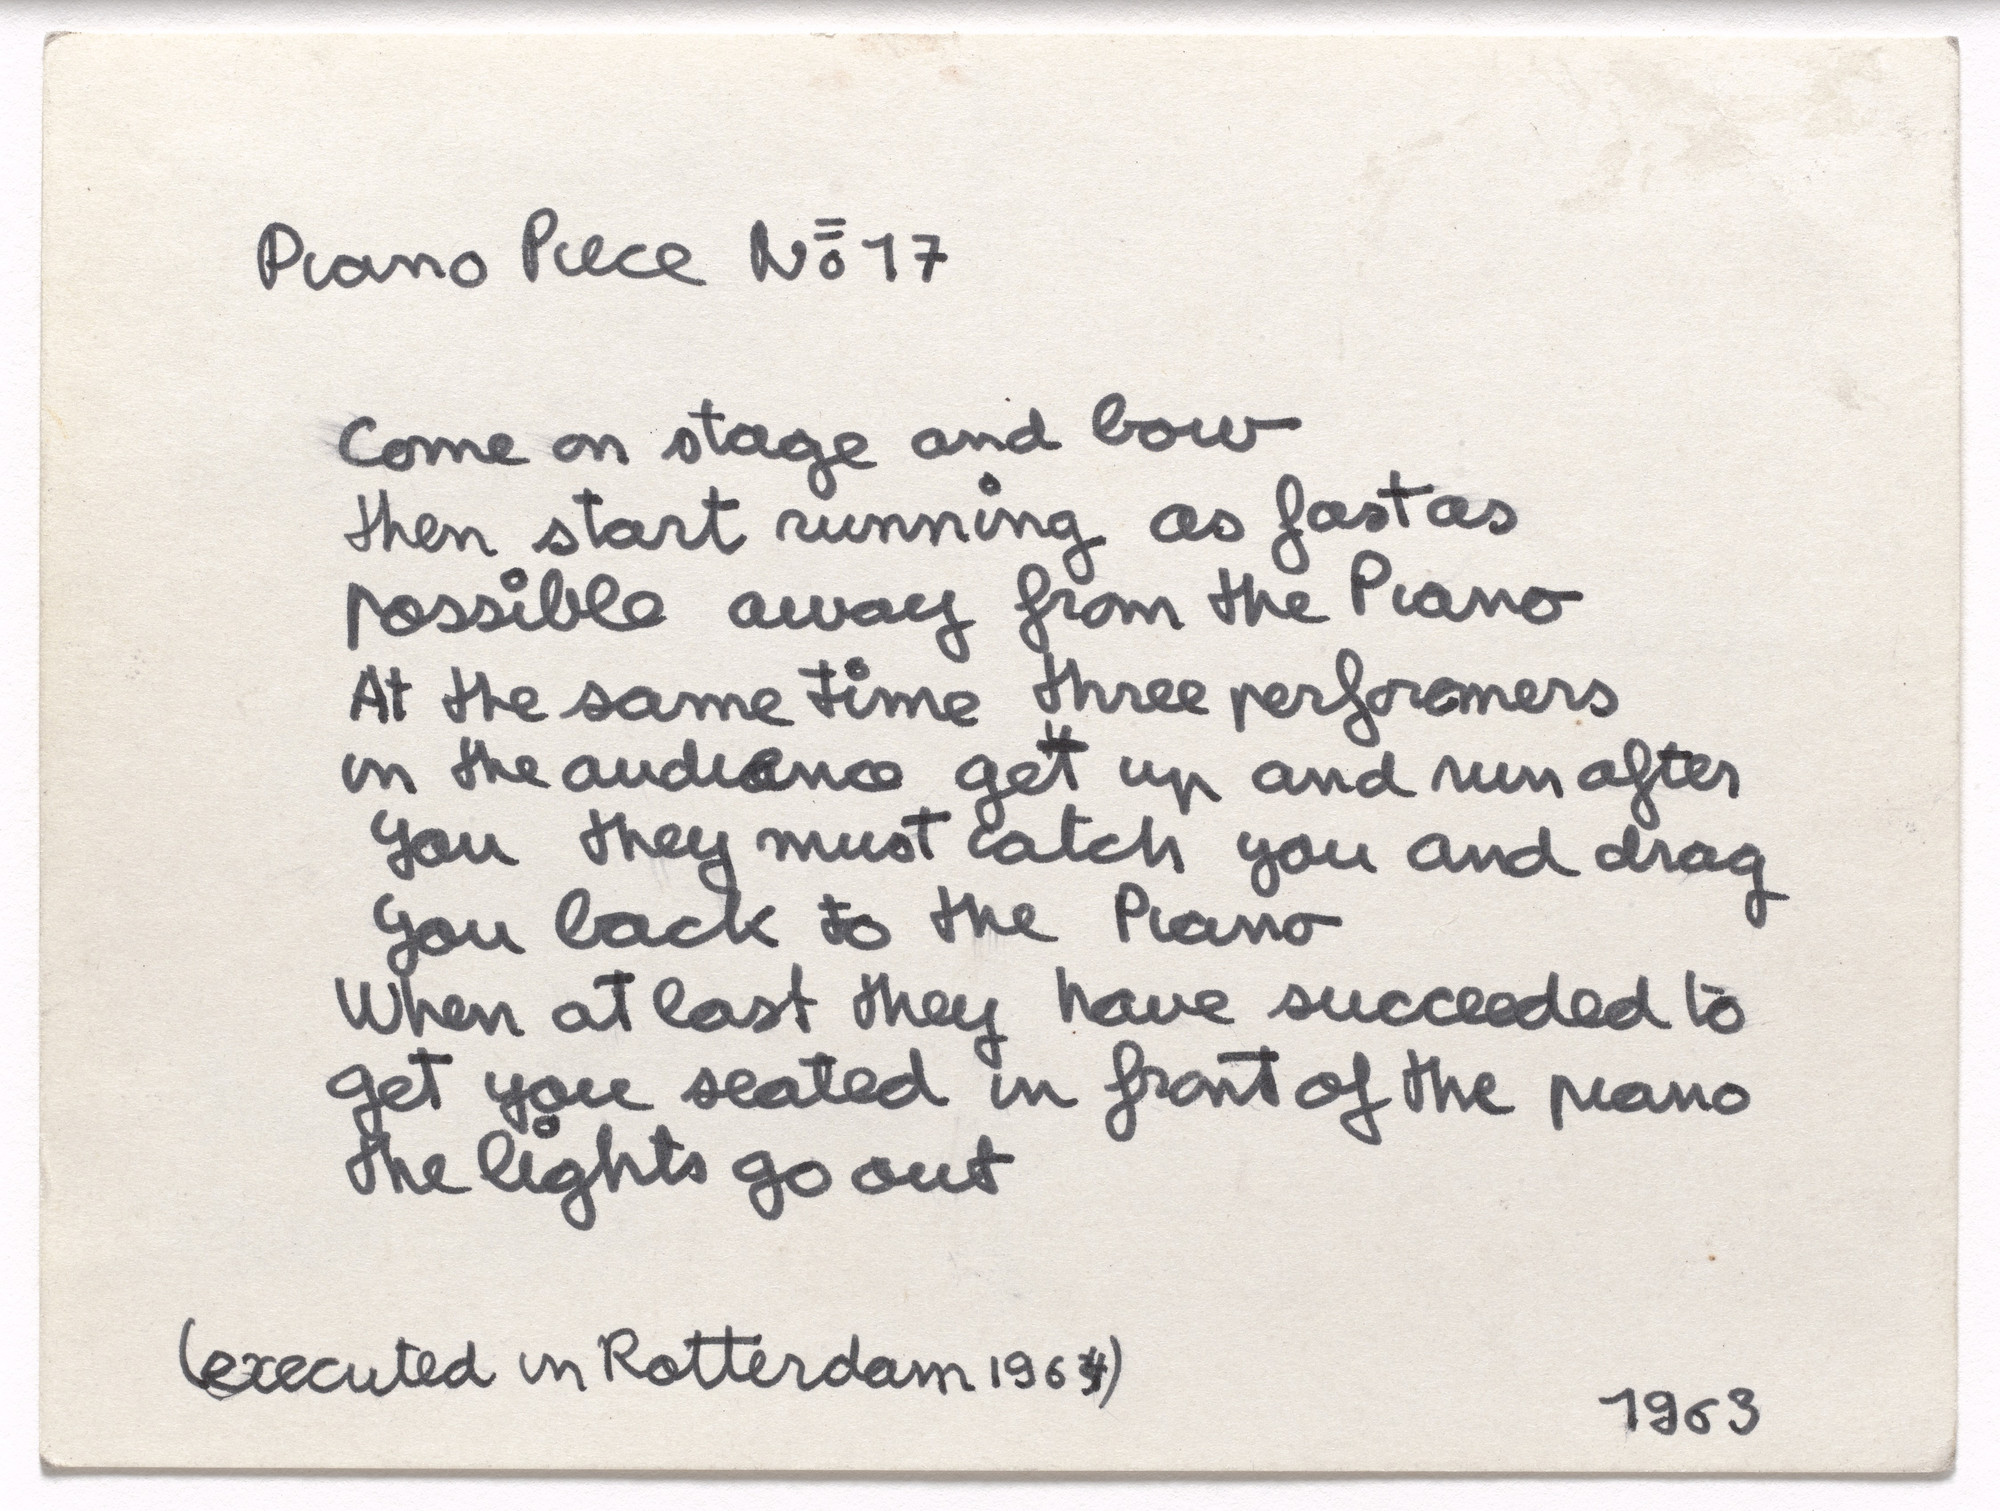 Piano Piece No 17
Come on stage and bow
then start running as fast as
possible away from the Piano
At the same time three performers
in the audience get up and run after
you they must catch you and drag
you back to the Piano
When at last they have succeeded to
get you seated in front of the piano
the lights go out
(executed in Rotterdam 1964)
1963